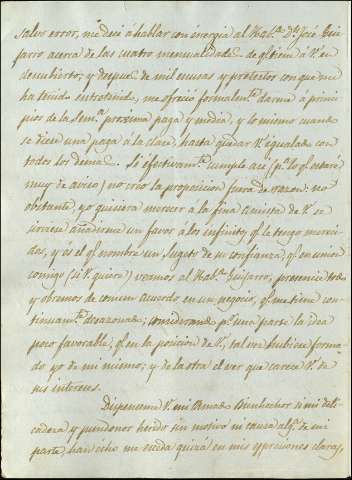 salvo error, me decé á hablar con energia al Hab.do D.n José Gui
jarro acerca de las cuatro mensualidades de q.e tiene á V. en
descubierto; y despues de mil escusas y pretestos con que me
ha tenido entretenido, me ofreció formalm.te darme á princi
pios de la Sem.a procsima paga y media, y lo mismo cuando
se diese una paga á la clase, hasta quedar V. igualado con
todos los demas. Si efectivam.te cumple asi (p.a lo q.e estaré
muy de aviso) no creo la proposicion fuera de razon: no
obstante, yo quisiera merecer á la fina amistad de V. se
sirviese añadirme un favor á los infinitos q.e le tengo mereci
dos, y és el q.e nombre un sugeto de su confianza, q.e en union
conmigo (si V. quiere) veamos al Hab.do Guijarro, presencie todo
y obremos de comun acuerdo en un negocio, q.e me tiene con
tinuam.te desazonado; considerando p.r una parte la idea
poco favorable, q.e en la posicion de V., tal vez hubiera forma-
do yo de mi mismo; y de la otra el ver que carece V. de
sus intereses.
Dispenseme V. mi Amado Bienhechor si mi deli-
cadeza y pundonor herido sin motivo ni causa alg.a de mi
parte, han echo me esceda quizá en mis espresiones claras,